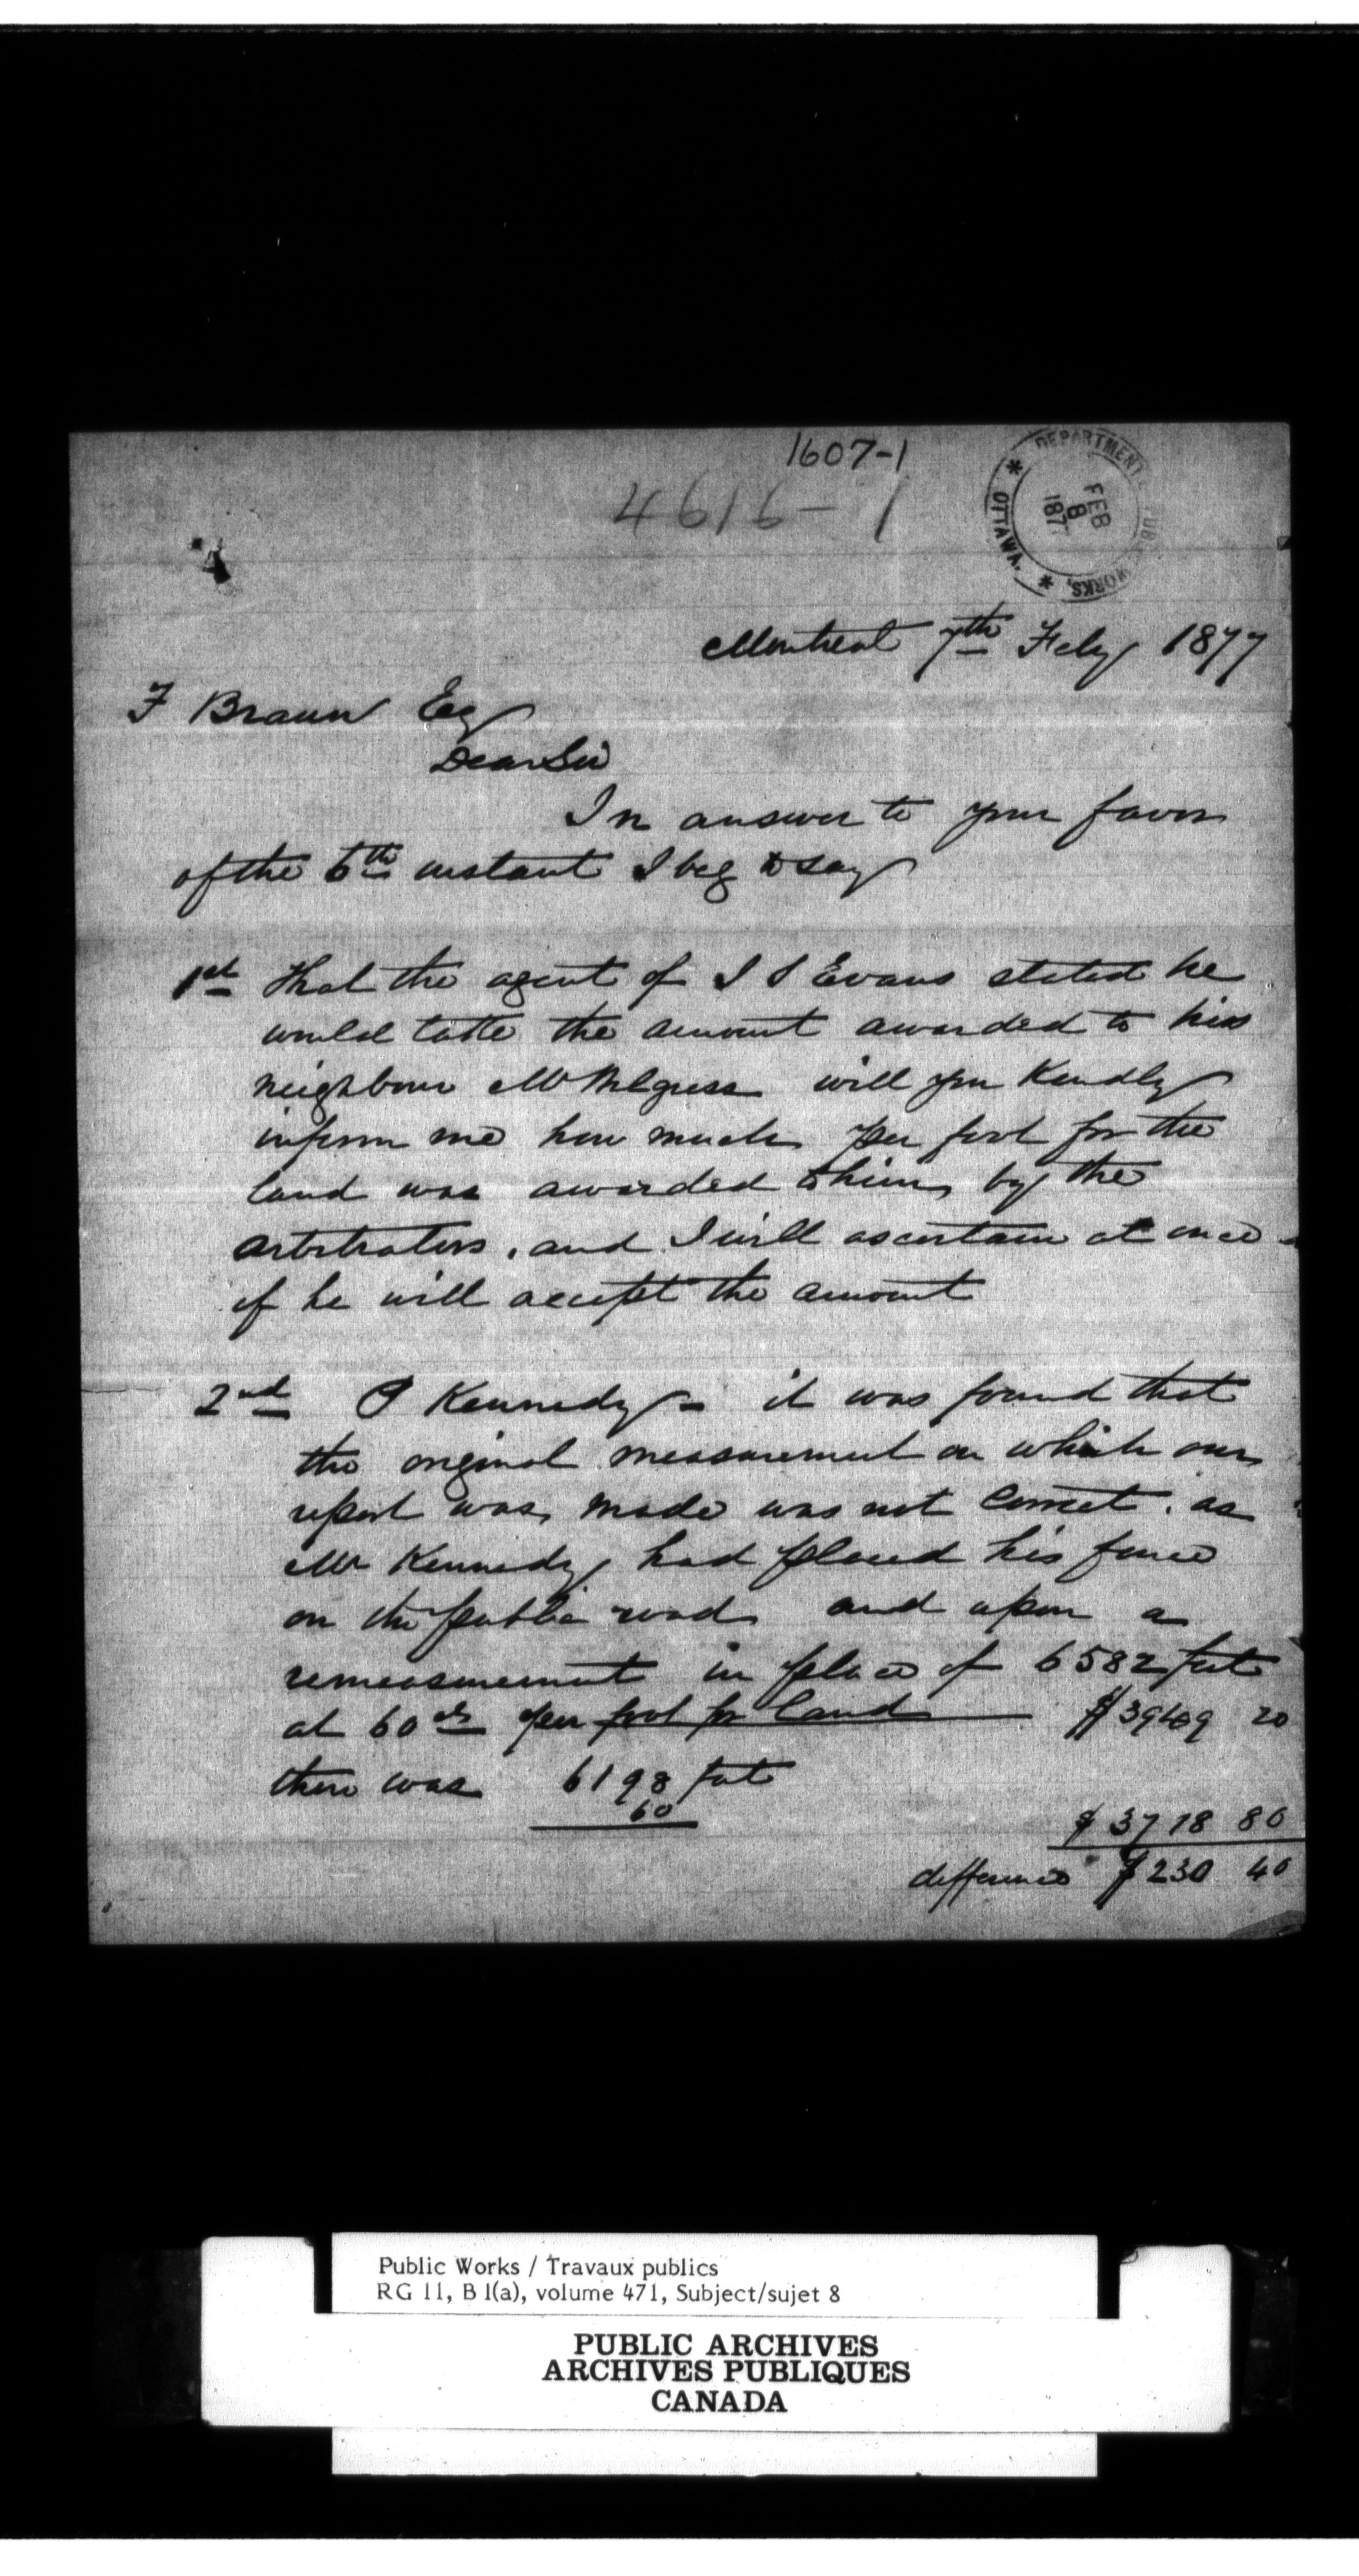 1607-1
4616-1
DEPARTMENT PUBLIC WORKS,
FEB
8
187
OTTAWA.
Montreal 7th Feby 1877
F Braun Esq
Dear Sir
In answer to your favor
of the 6th instant I beg to say
1st That the agent of J S Evans stated he
would take the amount awarded to his
neighbour Mr will you Kindly
inform me how much per foot for the
land was awarded to him, by the
arbitrators, and I will ascertain at once
if he will accept the amount
2nd P Kennedy - it was found that
the original measurement on which our
report was, made was not correct. as
Mr Kennedy, had placed his fence
on the public road and upon a
remeasurement in place of 6582 feet
at 60cts per foot for land $3949 20
there was 6198 feet
60
$3718 80
difference $230 40
Public Works / Travaux publics
RG 11, B 1(a), volume 471, Subject/sujet 8
PUBLIC ARCHIVES
ARCHIVES PUBLIQUES
CANADA